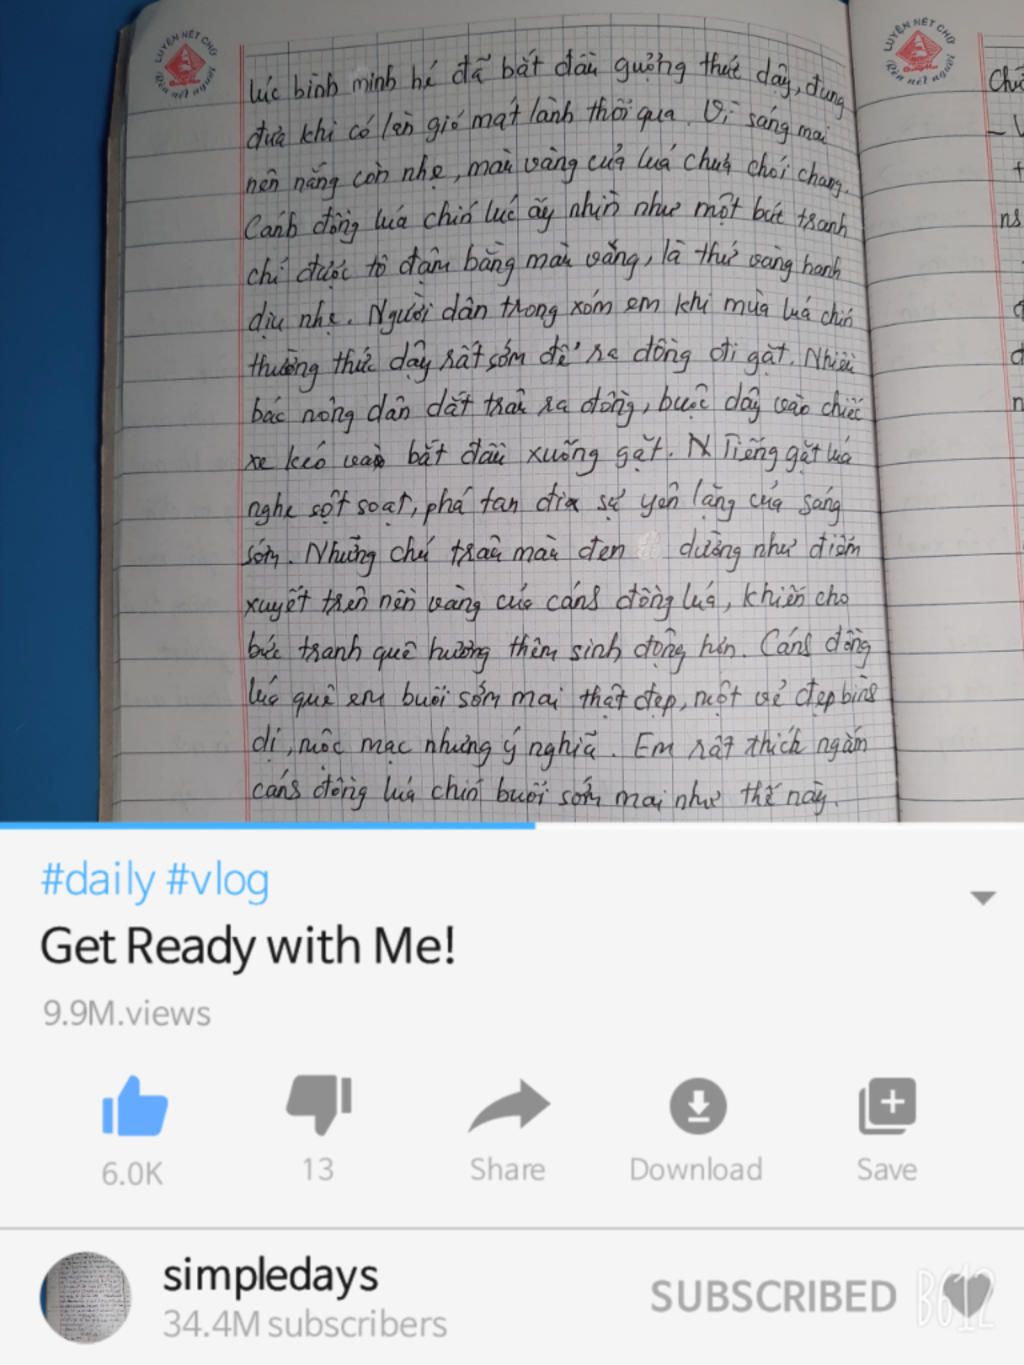 LUYỆN NÉT CHỮ
Rèn nết người
LUYỆN NÉT CHỮ
Rèn nết người
lúc bình minh hé đã bắt đầu gượng thức dậy, đung
đưa khi có làn gió mát lành thổi qua. Vì sáng mai
nên nắng còn nhẹ, màu vàng của luá chưa chói chang.
Cánh đồng luá chín lúc ấy nhìn như một bức tranh
chỉ được tô đậm bằng màu vàng, là thứ vàng hanh
dịu nhẹ. Người dân trong xóm em khi mùa luá chín
thường thức dậy rất sớm để ra đồng đi gặt. Nhiều
bác nông dân dắt trâu ra đồng, buộc dây vào chiếc
xe kéo và bắt đầu xuống gặt. Tiếng gặt luá
nghe sột soạt, phá tan đia sự yên lặng của sáng
sớm. Những chú trâu màu đen dường như điểm
xuyết trên nền vàng của cánh đồng luá, khiến cho
bức tranh quê hương thêm sinh động hơn. Cánh đồng
luá quê em buổi sớm mai thật đẹp, một vẻ đẹp bình
dị, mộc mạc nhưng ý nghiã. Em rất thích ngắm
cánh đồng luá chín buổi sớm mai như thế này.
#daily #vlog
Get Ready with Me!
9.9M.views
6.0K
13
Share
Download
Save
simpledays
34.4M subscribers
SUBSCRIBED
B612